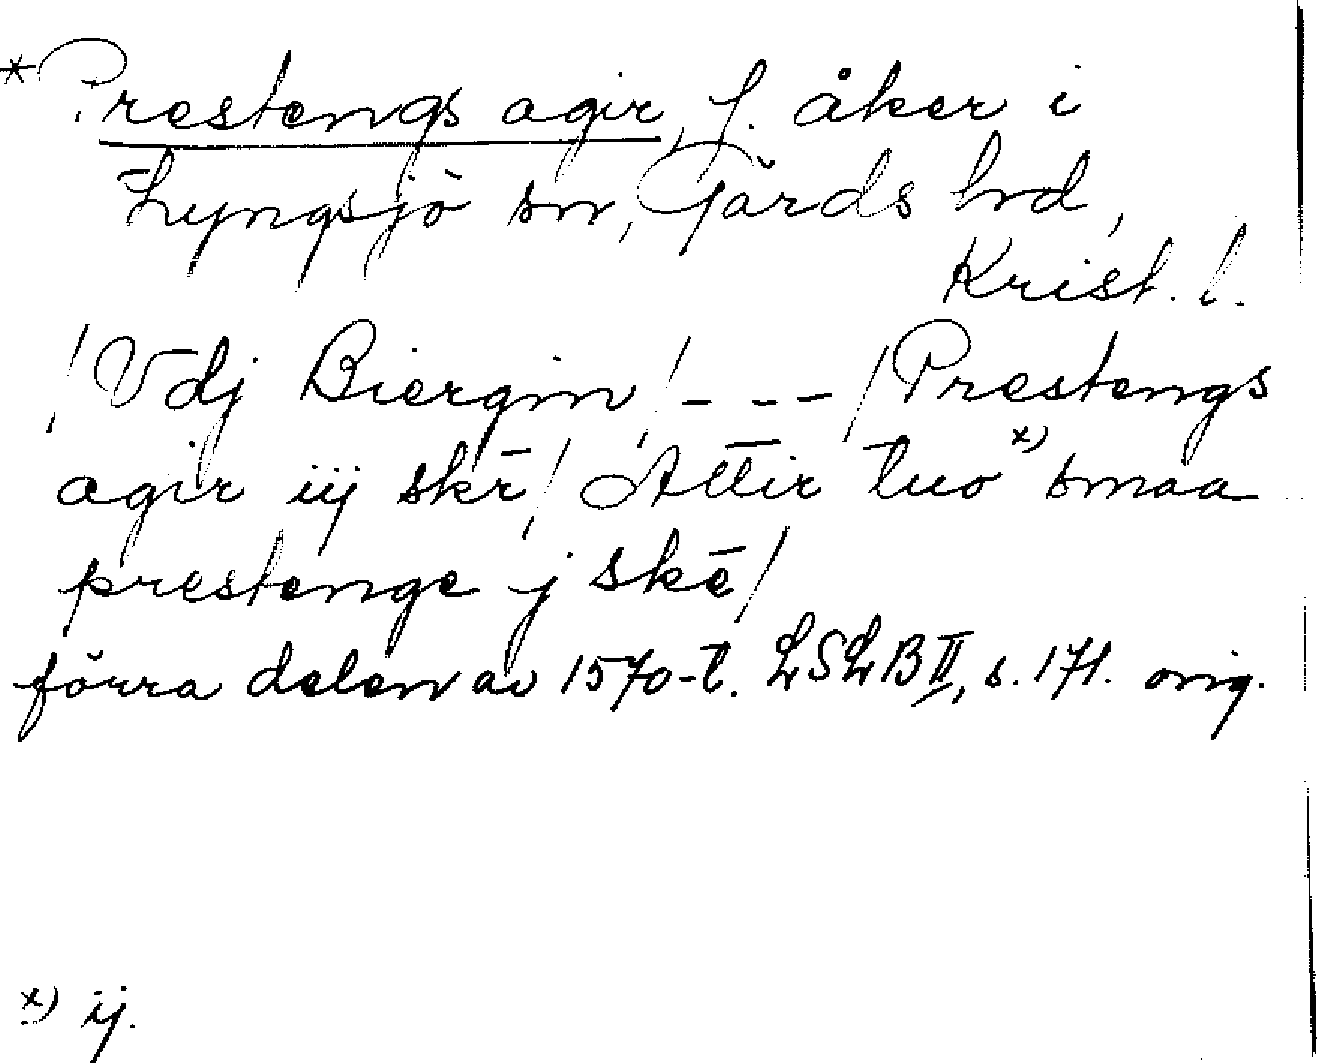 *Prestengs agir, f. åker i
Lyngsjö sn, Gärds hd,
Krist. l.
/Vdj Biergin/ - - - /Prestengs
agir iij skē/ Attir tuo x) smaa
prestenge j skē/
förra delen av 1570-t. LSLB II, s. 171. orig.
x) ij.